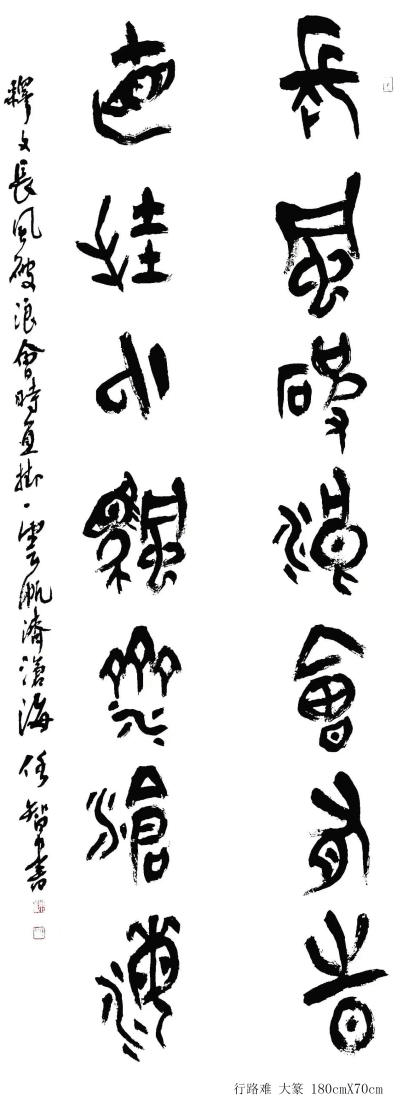 長風破浪會有時
直挂云帆濟滄海
釋文長風破浪會時直掛雲帆濟滄海 任智書
行路难 大篆 180cmX70cm